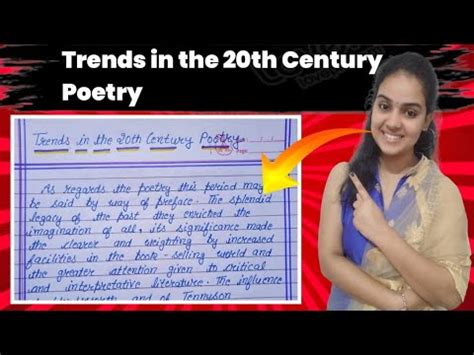 Trends in the 20th Century
Poetry
Trends in the 20th Century Poetry
As regards the poetry this period may
be said by way of preface. The splendid
legacy of the past they enriched the
imagination of all, its significance made
the clearer and weighting by increased
facilities in the book-selling world and
the greater attention given to critical
and interpretative literature. The influence
and of Tennyson